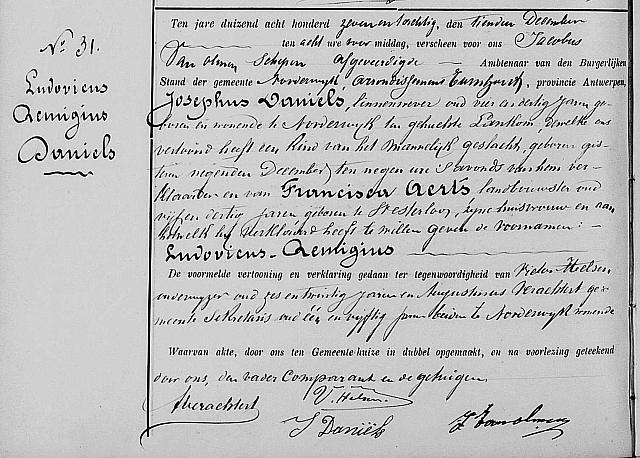 N° 31.
Ludovicus
Remigius
Daniels
Ten jare duizend acht honderd zeven en tachtig, den tienden December
ten acht ure voor middag, verscheen voor ons Jacobus
Van Olmen Schepen afgeveerdigde Ambtenaar van den Burgerlijken
Stand der gemeente Norderwyk, arrondissement Turnhout, provincie Antwerpen,
Josephus Daniels, linnenwever oud vier en dertig jaren ge-
boren en wonende te Norderwyk ten gehuchte, dewelke ons
vertoond heeft een kind van het mannelyk geslacht, geboren gis-
teren negenden December ten negen ure s'avonds van hem ver-
klaarder en van Francisca Aerts landbouwster oud
vyf en dertig jaren geboren te Westerloo, zyne huisvrouw en aan
hetwelk hy verklaard heeft te willen geven de voornamen:
Ludovicus-Remigius
De voormelde vertooning en verklaring gedaan ter tegenwoordigheid van
onderwyzer oud zes en twintig jaren en Augustinus Verachtert ge-
meente Sekretaris oud één en vyftig jaren beiden te Norderwyk wonende
Waarvan akte, door ons ten Gemeente-huize in dubbel opgemaakt, en na voorlezing geteekend
door ons, den vader Comparant en de getuigen
Averachtert
J Daniëls
J Van Olmen